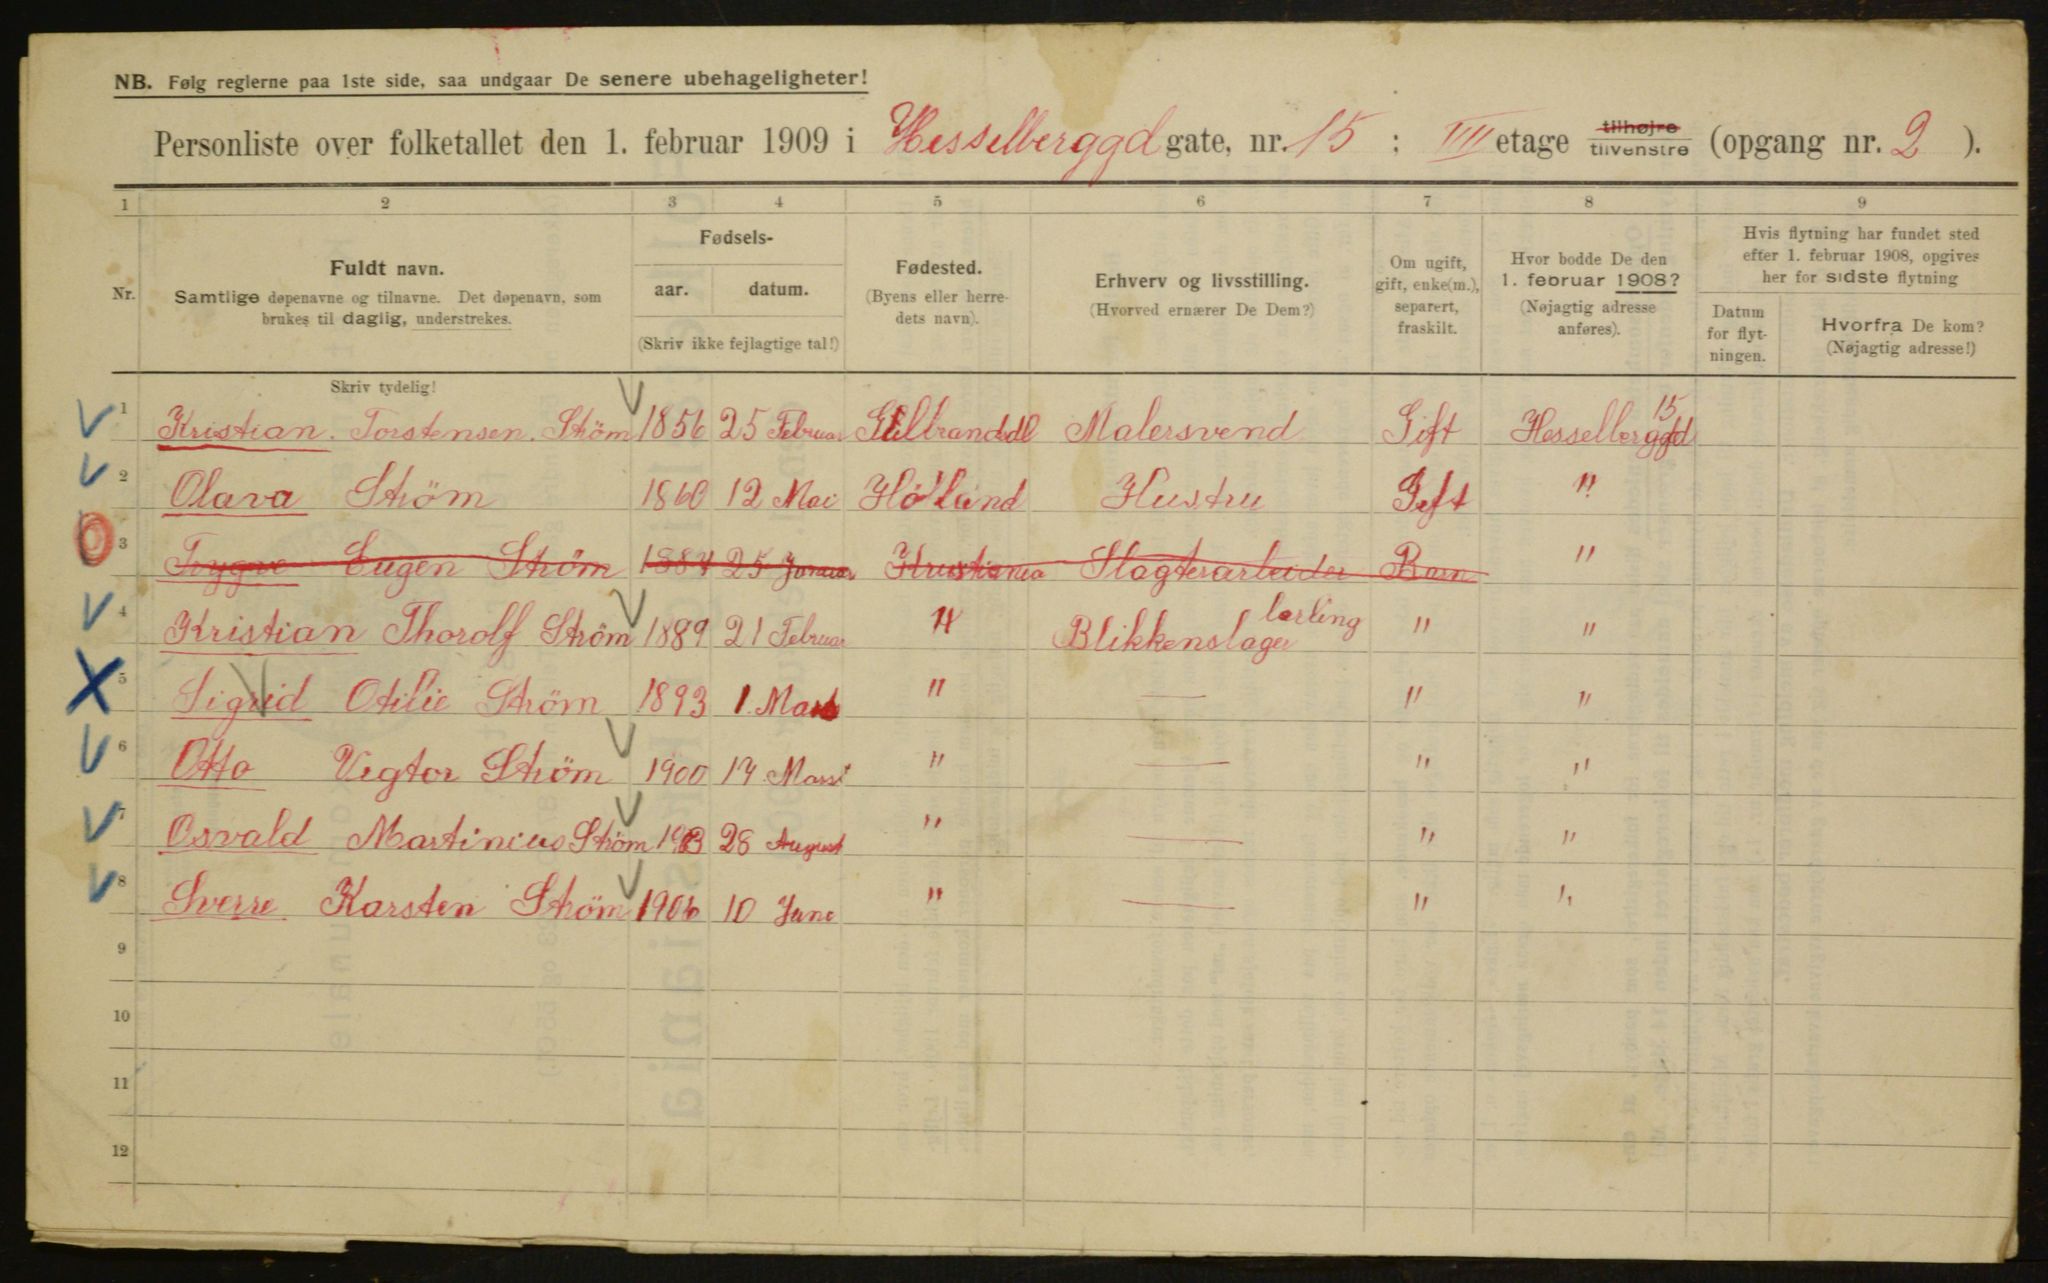 NB. Følg reglerne paa 1ste side, saa undgaar De senere ubehageligheter!
Personliste over folketallet den 1. februar 1909 i Hesselberggd gate, nr. 15 ; III etage tilhøjre tilvenstre (opgang nr. 2 ).
1 2 3 4 5 6 7 8 9
Nr. Fuldt navn. Samtlige døpenavne og tilnavne. Det døpenavn, som brukes til daglig, understrekes.
Fødsels- aar. datum. (Skriv ikke fejlagtige tal!)
Fødested. (Byens eller herredets navn).
Erhverv og livsstilling. (Hvorved ernærer De Dem?)
Om ugift, gift, enke(m.), separert, fraskilt.
Hvor bodde De den 1. februar 1908? (Nøjagtig adresse anføres).
Hvis flytning har fundet sted efter 1. februar 1908, opgives her for sidste flytning
Datum for flytningen. Hvorfra De kom? (Nøjagtig adresse!)
Skriv tydelig!
1 Kristian. Torstensen. Ström 1856 25 Februar Gulbrandsdl Malersvend Gift Hesselberggd 15
2 Olava Ström 1860 12 Mai Höland Hustru Gift "
3 Trygve Eugen Ström 1884 25 Januar Kristiania Slagterarbeider Barn "
4 Kristian Thorolf Ström 1889 21 Februar " Blikkenslager lærling " "
5 Sigrid Otilie Ström 1893 1. Mars " — " "
6 Otto Vigtor Ström 1900 17. Mars " — " "
7 Osvald Martinius Ström 1903 28 August " — " "
8 Sverre Karsten Ström 1906 10 June " — " "
9
10
11
12